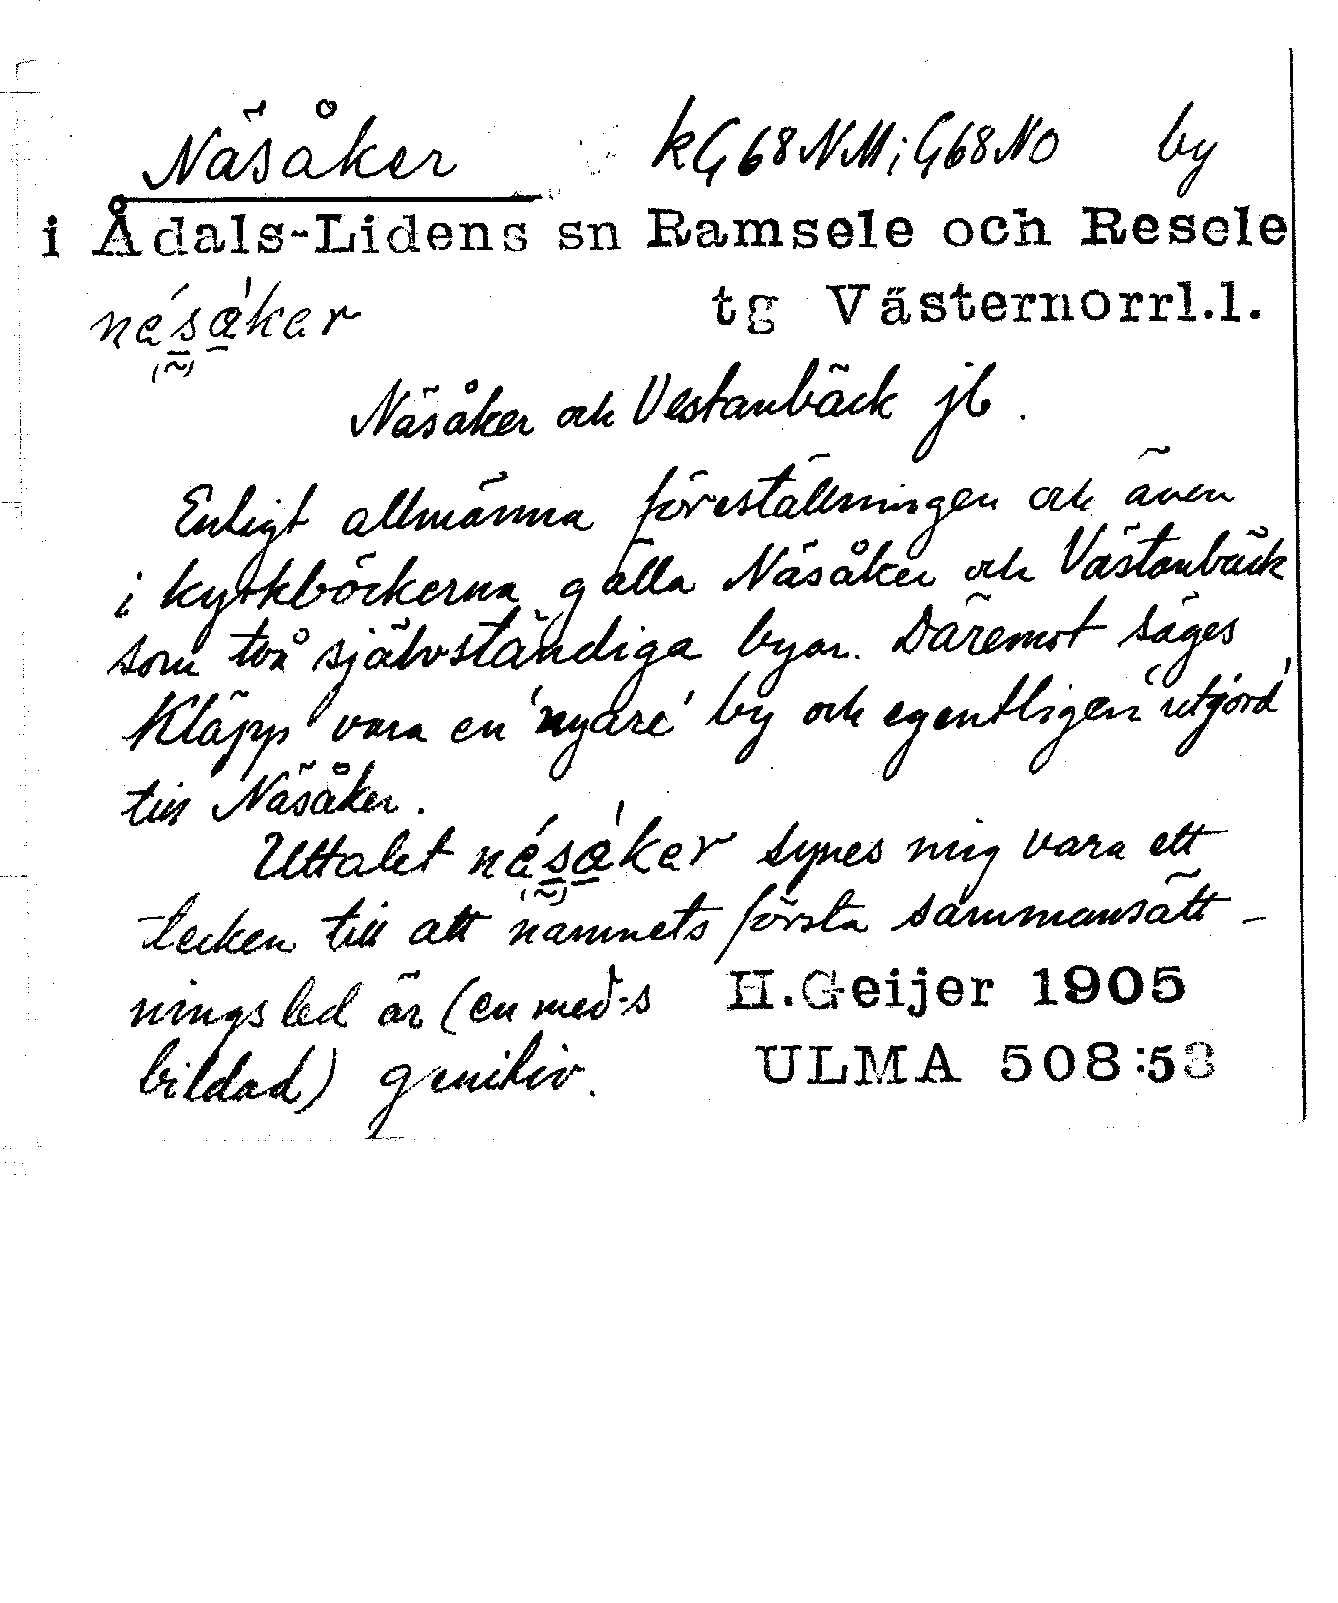 Näsåker kG68NM; G68NO by
i Ådals-Lidens sn Ramsele och Resele
nésåker tg Västernorrl.l.
Näsåker och Vestanbäck jb.
Enligt allmänna föreställningen och även
i kyrkböckerna gälla Näsåker och Västanbäck
som två självständiga byar. Däremot säges
Kläpp vara en 'nyare' by och egentligen 'utjord'
till Näsåker.
Uttalet synes mig vara ett
tecken till att namnets första sammansätt-
ningsled är (en med -s H.Geijer 1905
bildad) genitiv. ULMA 508:53